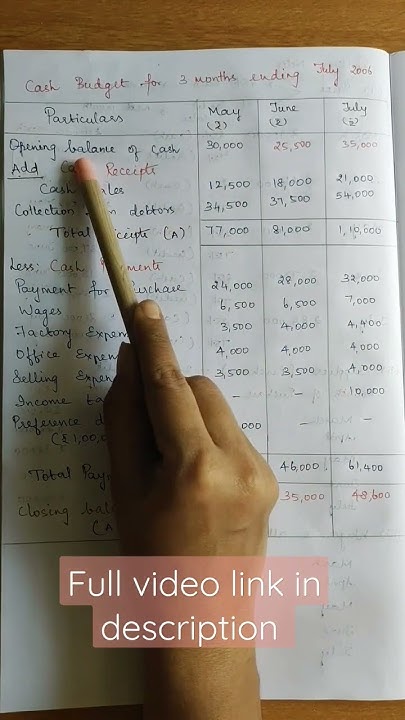 Cash Budget for 3 months ending July 2006
Particulars May (₹) June (₹) July (₹)
Opening balance of cash 30,000 25,500 35,000
Add Receipts
Cash 12,500 18,000 21,000
Collection debtors 34,500 37,500 54,000
Total (A) 77,000 81,000 1,10,000
Less: Cash
Payment for 24,000 28,000 32,000
Wages 6,500 6,500 7,000
Factory 3,500 4,000 4,400
Office 4,000 4,000 4,000
Selling 3,500 3,500 4,000
Income - - 10,000
Preference 000 - -
(₹1,00,
Total 46,000 61,400
Closing 35,000 48,600
(A
Full video link in
description